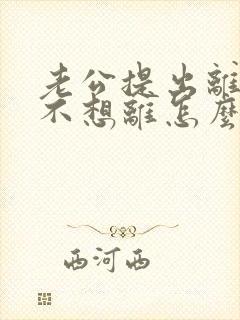 老公提出離
不想離怎麼
西河西